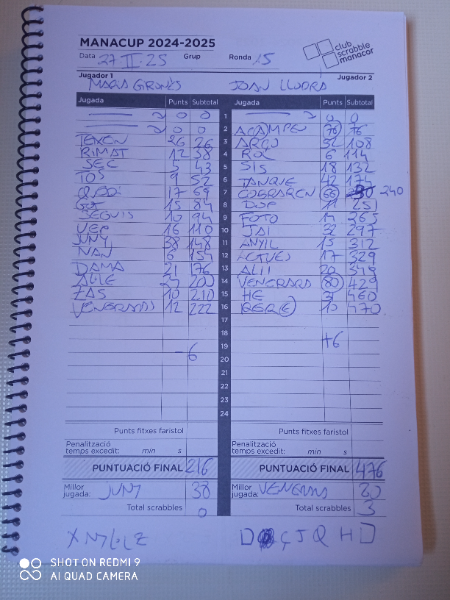 MANACUP 2024-2025
club scrabble manacor
Data 27 II 25 Grup Ronda 15
Jugador 1 Jugador 2
MAGÍ GIRONÈS JOAN LLODRÀ
Jugada Punts Subtotal Jugada Punts Subtotal
0 0 1 0 0
0 0 2 ACAMPEU 76 76
TEIXEN 26 26 3 ARÇO 32 108
RIMAT 12 38 4 ROC 6 114
SEC 5 43 5 SIS 18 132
TOS 9 52 6 TANQUE 42 174
17 69 7 66 240
GOT 15 84 8 DOP 11 251
SEGUIS 10 94 9 FOTO 14 265
VEP 16 110 10 JAI 32 297
JUNY 38 148 11 ANYIL 15 312
NAN 6 154 12 17 329
DAMA 21 176 13 20 349
24 200 14 VENERARS 80 429
ZAS 10 210 15 HE 31 460
VENERARAS 12 222 16 10 470
17
18
19 +6
-6 20
21
22
23
24
Punts fitxes faristol Punts fitxes faristol
Penalització temps excedit: min s Penalització temps excedit: min s
PUNTUACIÓ FINAL 216 PUNTUACIÓ FINAL 476
Millor jugada: JUNY 38 Millor jugada: VENERARS 80
Total scrabbles 0 Total scrabbles 3
X NY L·L Z D Ç J Q H D
SHOT ON REDMI 9
AI QUAD CAMERA